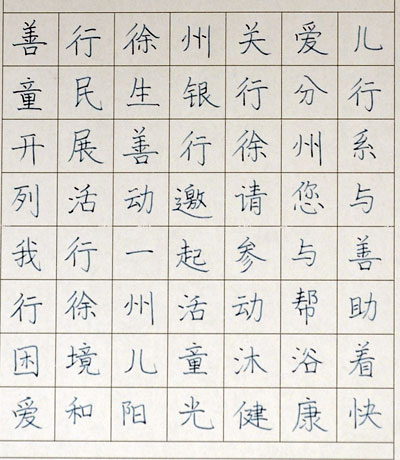 善行徐州关爱儿
童民生银行分行
开展善行徐州系
列活动邀请您与
我行一起参与善
行徐州活动帮助
困境儿童沐浴着
爱和阳光健康快